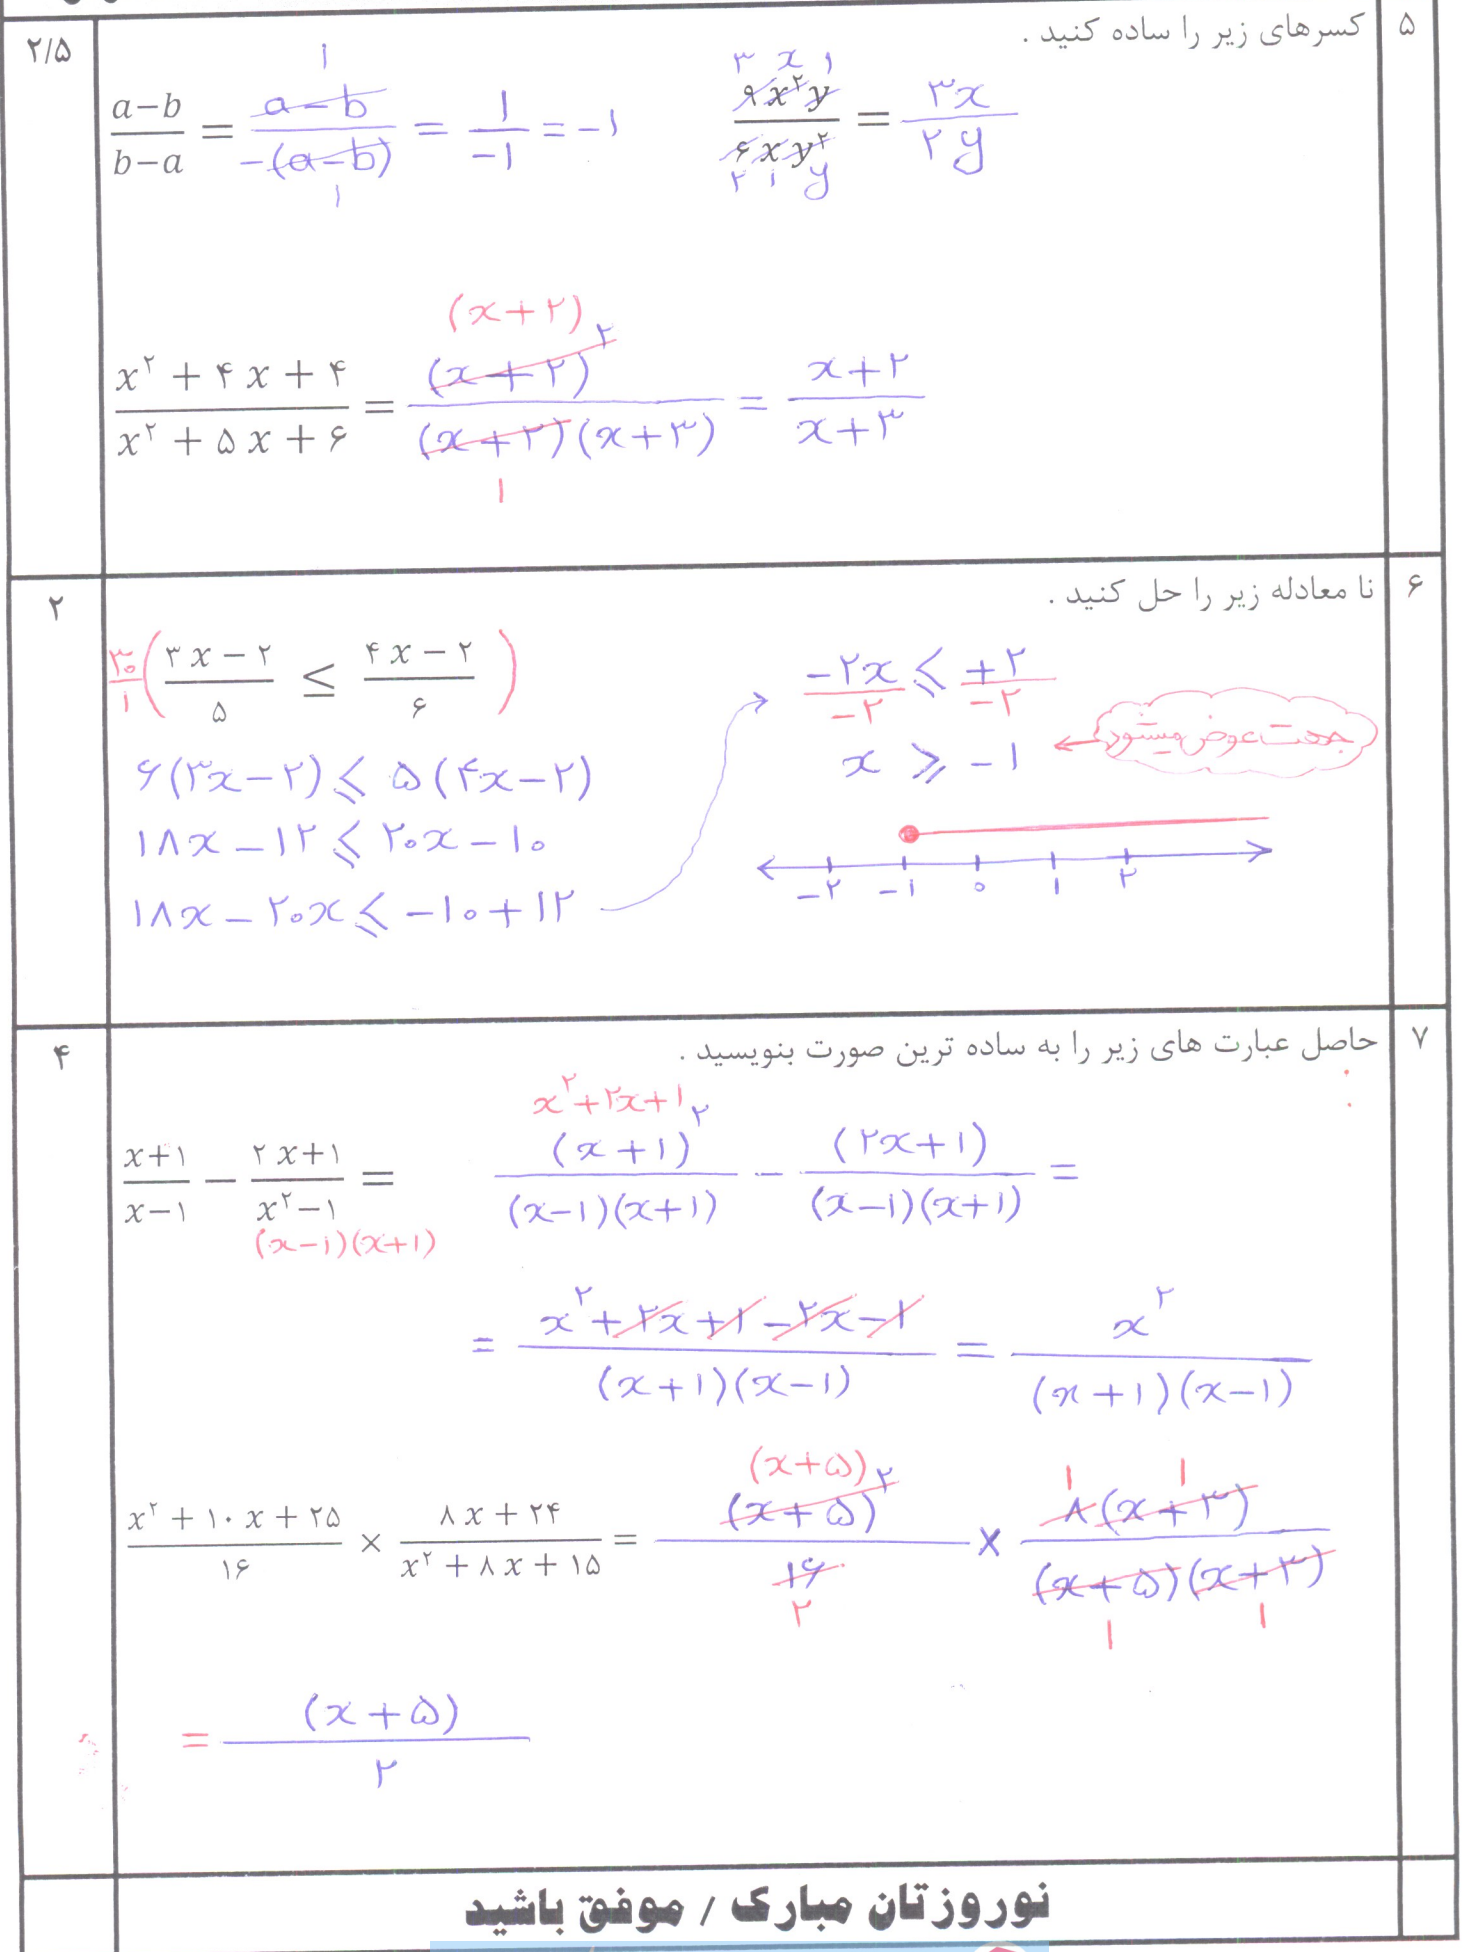 ۵ کسرهای زیر را ساده کنید . ۲/۵
a−b / b−a = a−b / −(a−b) = ۱ / −۱ = −۱
۹x²y / ۶xy² = ۳x / ۲y
x² + ۴x + ۴ / x² + ۵x + ۶ = (x+۲)² / (x+۲)(x+۳) = x+۲ / x+۳
(x+۲)
۱
۶ نا معادله زیر را حل کنید . ۲
۳۰/۱ ( ۳x − ۲ / ۵ ≤ ۴x − ۲ / ۶ )
۶(۳x−۲) ≤ ۵(۴x−۲)
۱۸x − ۱۲ ≤ ۲۰x − ۱۰
۱۸x − ۲۰x ≤ −۱۰ + ۱۲
−۲x / −۲ ≤ +۲ / −۲
x ≥ −۱
جهت عوض میشود
−۲ −۱ ۰ ۱ ۲
۷ حاصل عبارت های زیر را به ساده ترین صورت بنویسید . ۴
x²+۲x+۱
x+۱ / x−۱ − ۲x+۱ / x²−۱ = (x+۱)² / (x−۱)(x+۱) − (۲x+۱) / (x−۱)(x+۱) =
(x−۱)(x+۱)
= x²+۲x+۱−۲x−۱ / (x+۱)(x−۱) = x² / (x+۱)(x−۱)
(x+۵) ۱ ۱
x² + ۱۰x + ۲۵ / ۱۶ × ۸x + ۲۴ / x² + ۸x + ۱۵ = (x+۵)² / ۱۶ × ۸(x+۳) / (x+۵)(x+۳)
۲ ۱ ۱
= (x+۵) / ۲
نوروزتان مبارک / موفق باشید